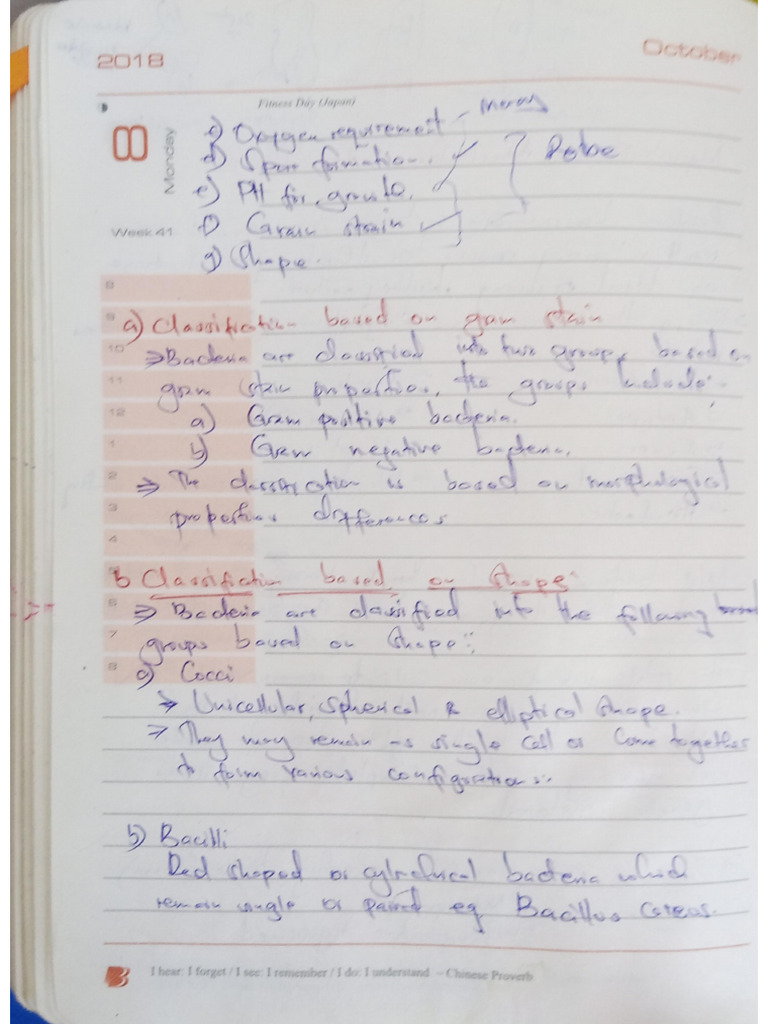 2018
October
Fitness Day (Japan)
8
Monday
c) Oxygen requirement -
d) Spore formation.
e) PH for growth.
f) Gram stain
Week 41
g) Shape.
8
9 a) Classification based on gram stain
10 ⇒ Bacteria are classified into two groups based on
11 gram stain properties, the groups include:
12 a) Gram positive bacteria.
1 b) Gram negative bacteria.
2 ⇒ The classification is based on morphological
3 properties differences
4
5 b Classifiction based on Shape:
6 ⇒ Bacteria are classified into the following
7 groups based on Shape:
8 a) Cocci
⇒ Unicellular, spherical & elliptical shape.
⇒ They may remain as single cell or come together
to form various configurations.
b) Bacilli
Rod shaped or cylindrical bacteria which
remain single or paired eg Bacillus Cereus.
B I hear: I forget / I see: I remember / I do: I understand – Chinese Proverb